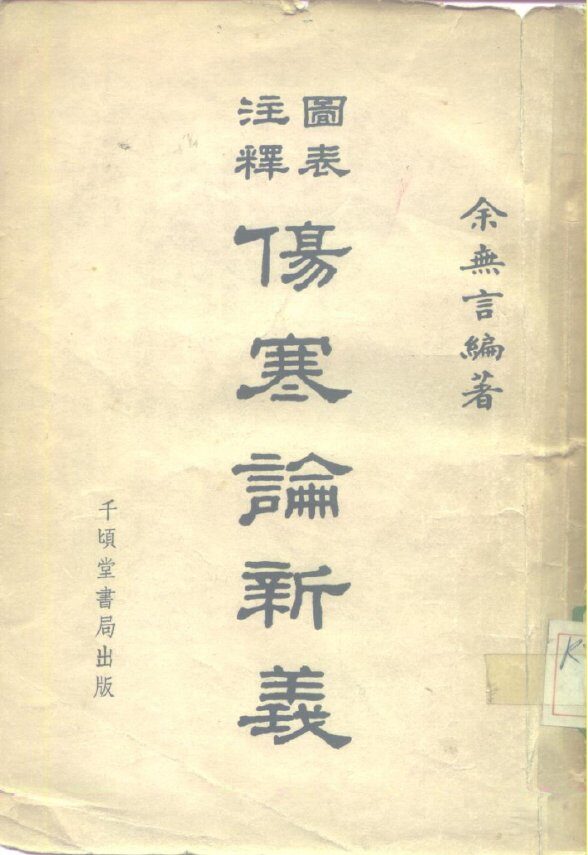 余無言編著
圖表
注釋
傷寒論新義
千頃堂書局出版
K